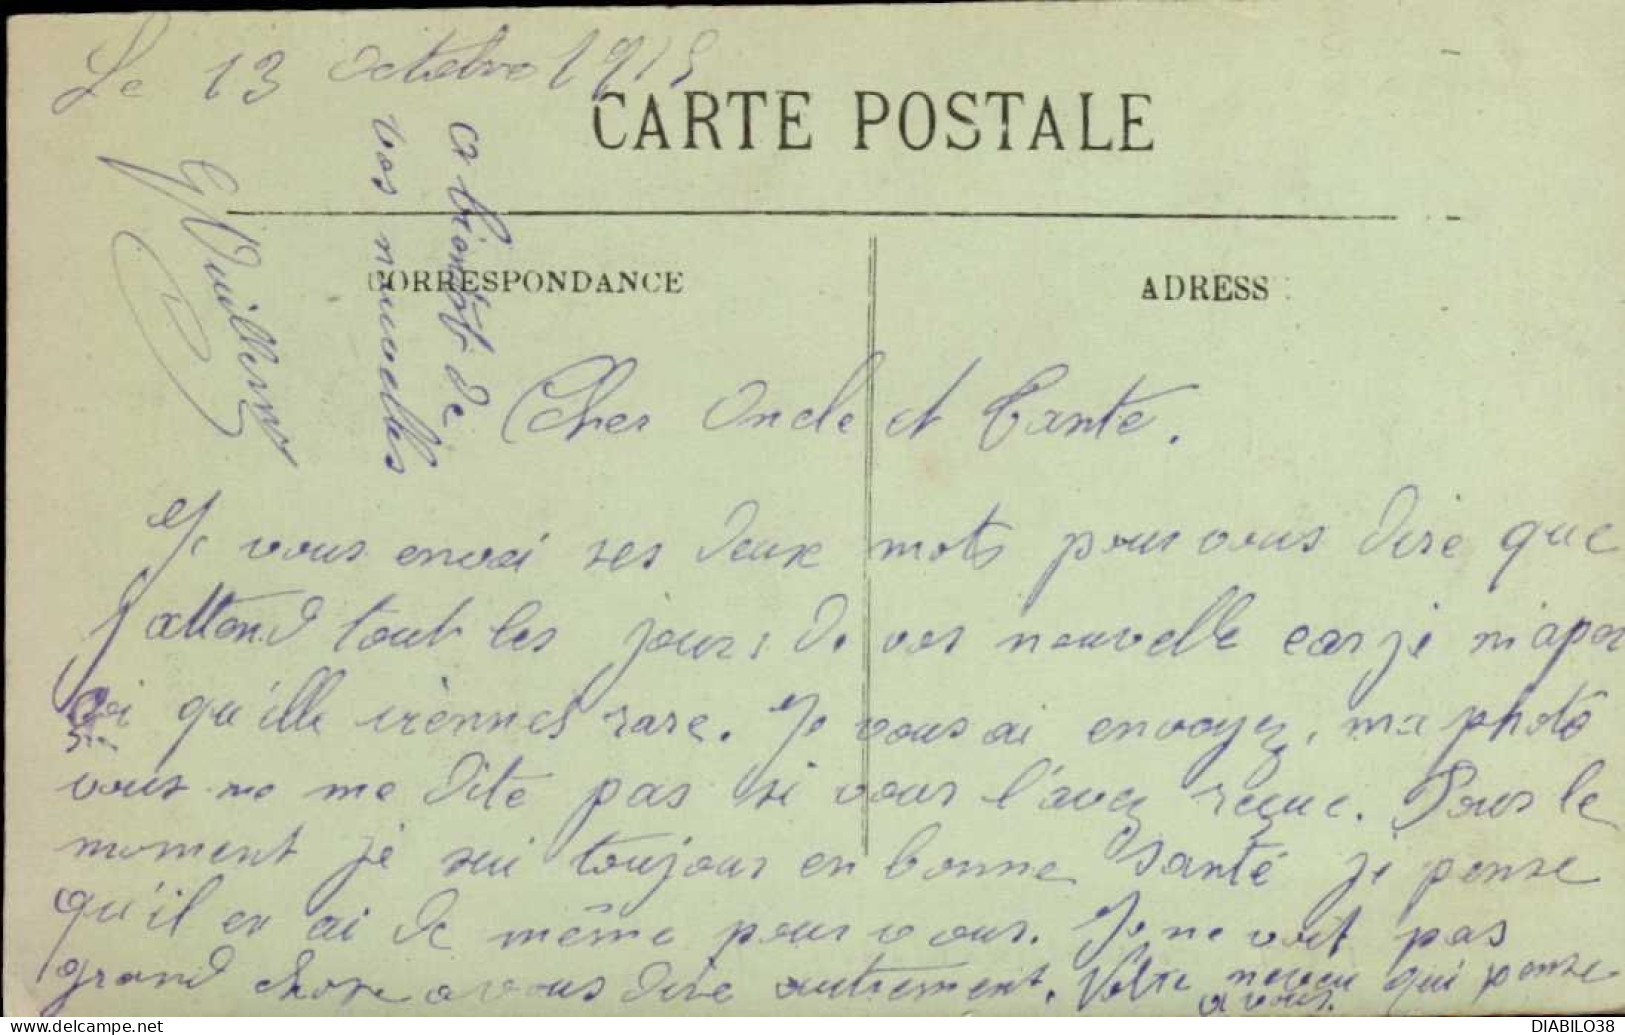 Le 13 octobre 1915
CARTE POSTALE
CORRESPONDANCE
ADRESS
Cher Oncle et Tante.
Je vous envoi ses deux mots pour vous dire que
j'attend tout les jours de vos nouvelle car je m'aper
soi qu'ille viennes rare. Je vous ai envoyez, ma photo
vous ne me dite pas si vous l'avez reçue. Pour le
moment je sui toujour en bonne santé je pense
qu'il en ai de même pour vous. Je ne voit pas
grand chose a vous dire autrement. Votre neveu qui pense
a vous.
a bientôt de
vos nouvelles
G Vuillerm
DIABILO38